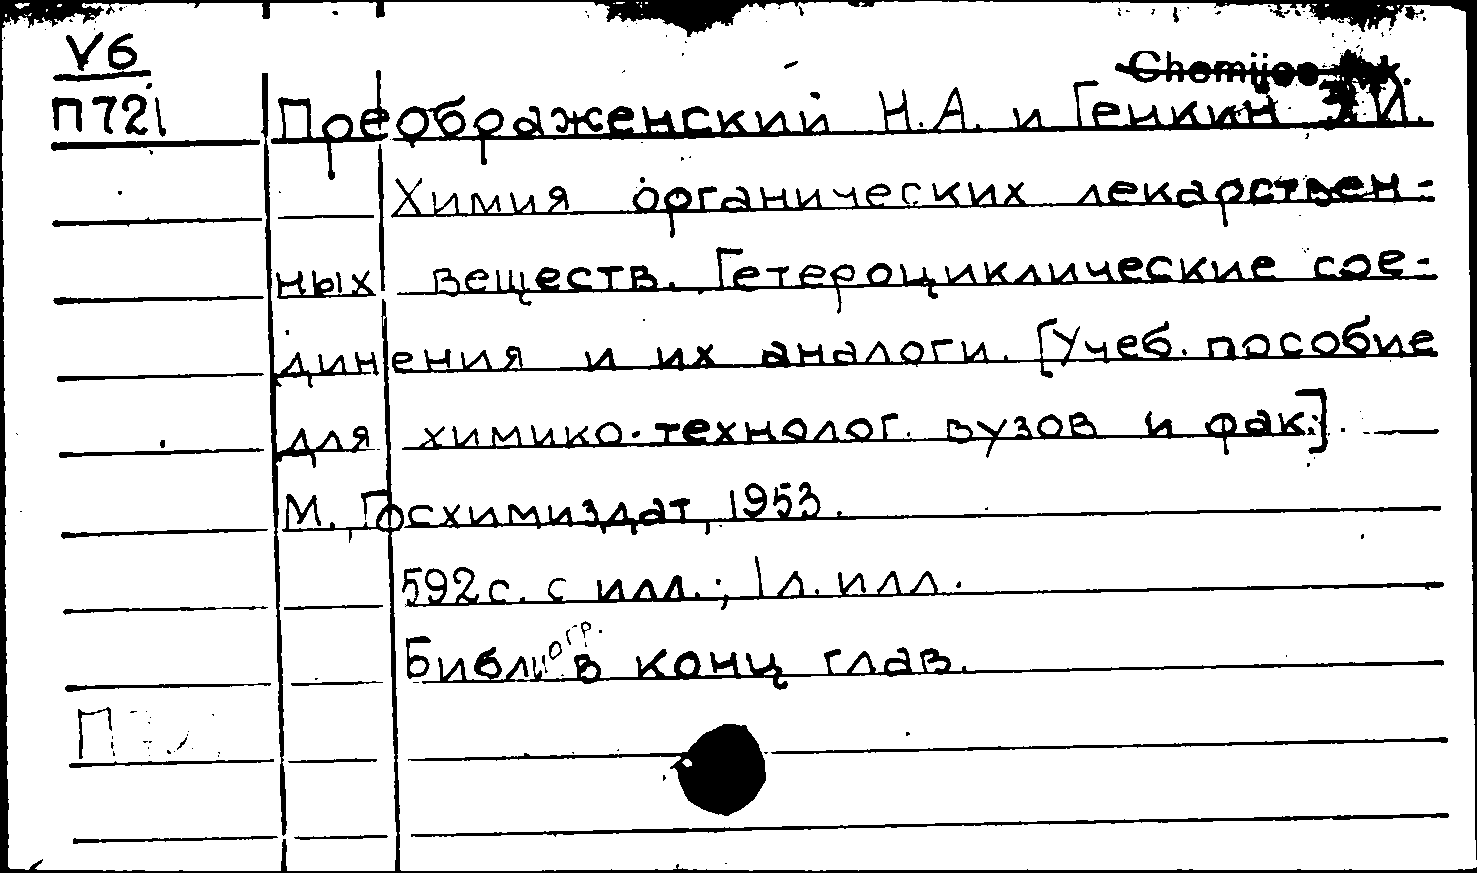 V6
П721
Преображенский Н.А. и Генкин Э.И.
Химия органических лекарствен-
ных веществ. Гетероциклические сое-
динения и их аналоги. [Учеб. пособие
для химико-технолог. вузов и фак.]
М., Госхимиздат, 1953.
592 с. с илл.; 1 л. илл.
Библиогр. в конц глав.